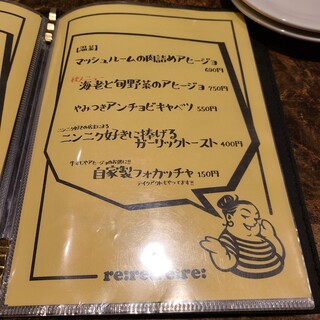 【温菜】
マッシュルームの肉詰めアヒージョ
600円
海老と旬野菜のアヒージョ 750円
やみつきアンチョビキャベツ 550円
ニンニク好きに捧げる
ガーリックトースト 400円
自家製フォカッチャ 150円
テイクアウトもやってます!!